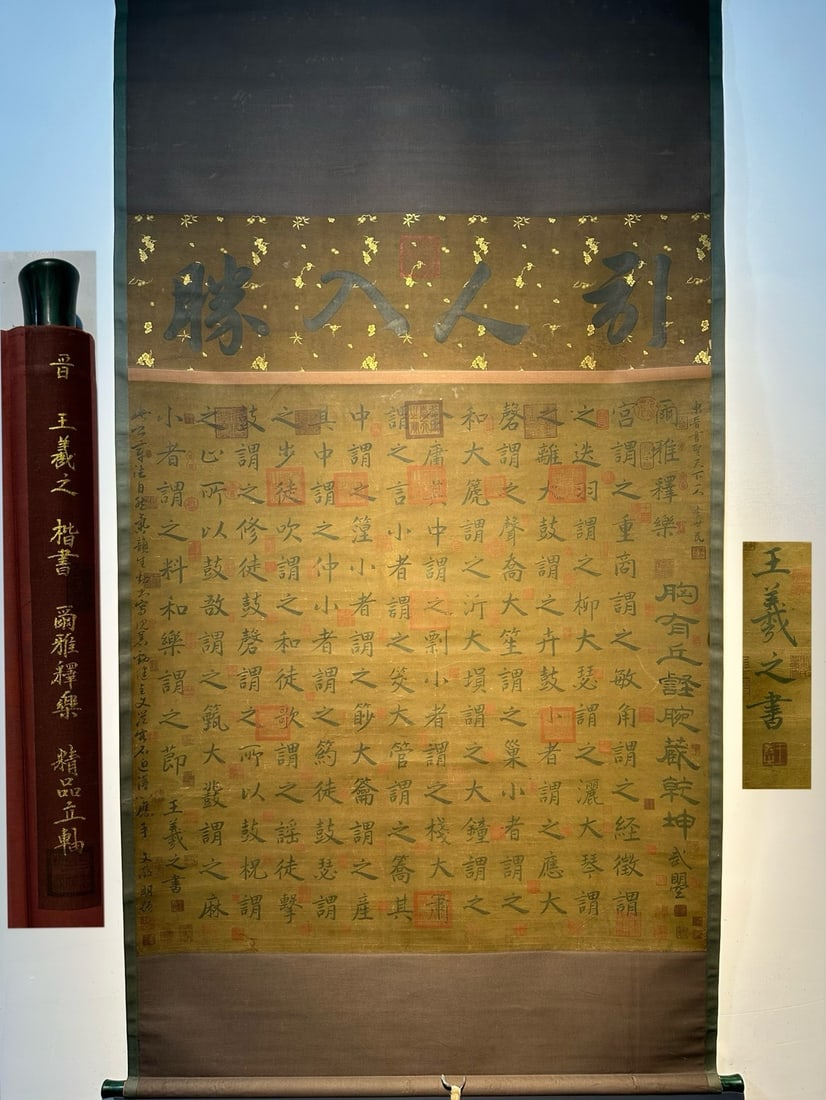 引人入勝
東晉書聖天下一人 李世民
爾雅釋樂
胸有丘壑腕藏乾坤 武曌
宮謂之重商謂之敏角謂之経徵謂
之迭羽謂之柳大瑟謂之灑大琴謂
之離大鼓謂之卉鼓小者謂之應大
磬謂之聲喬大笙謂之巢小者謂之
和大篪謂之沂大塤謂之大鐘謂之
庸其中謂之剽小者謂之棧大肅
謂之言小者謂之筊大管謂之籥其
中謂之篞小者謂之篎大籥謂之産
其中謂之仲小者謂之箹徒鼓瑟謂
之步徒吹謂之和徒歌謂之謠徒擊
鼓謂之修徒鼓磬謂之所以鼓柷謂
之止所以鼓敔謂之籈大鼗謂之麻
小者謂之料和樂謂之節 王羲之書
晉 王羲之 楷書 爾雅釋樂 精品立軸
王羲之書